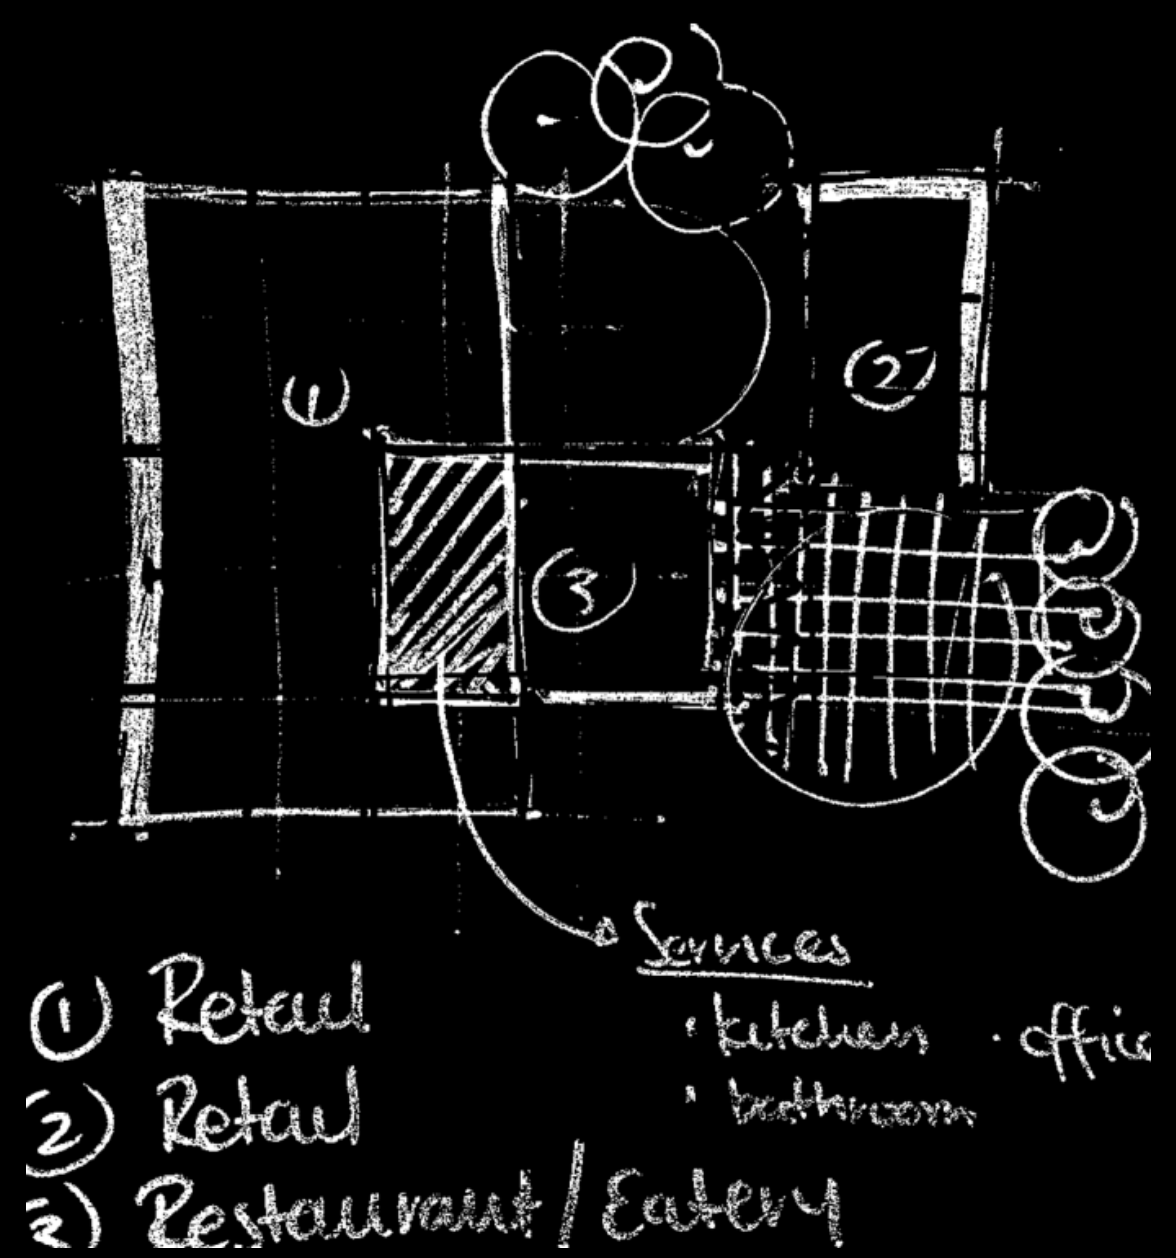 1
2
3
Services
· kitchen · office
· bathroom
1 Retail
2 Retail
3 Restaurant / Eatery